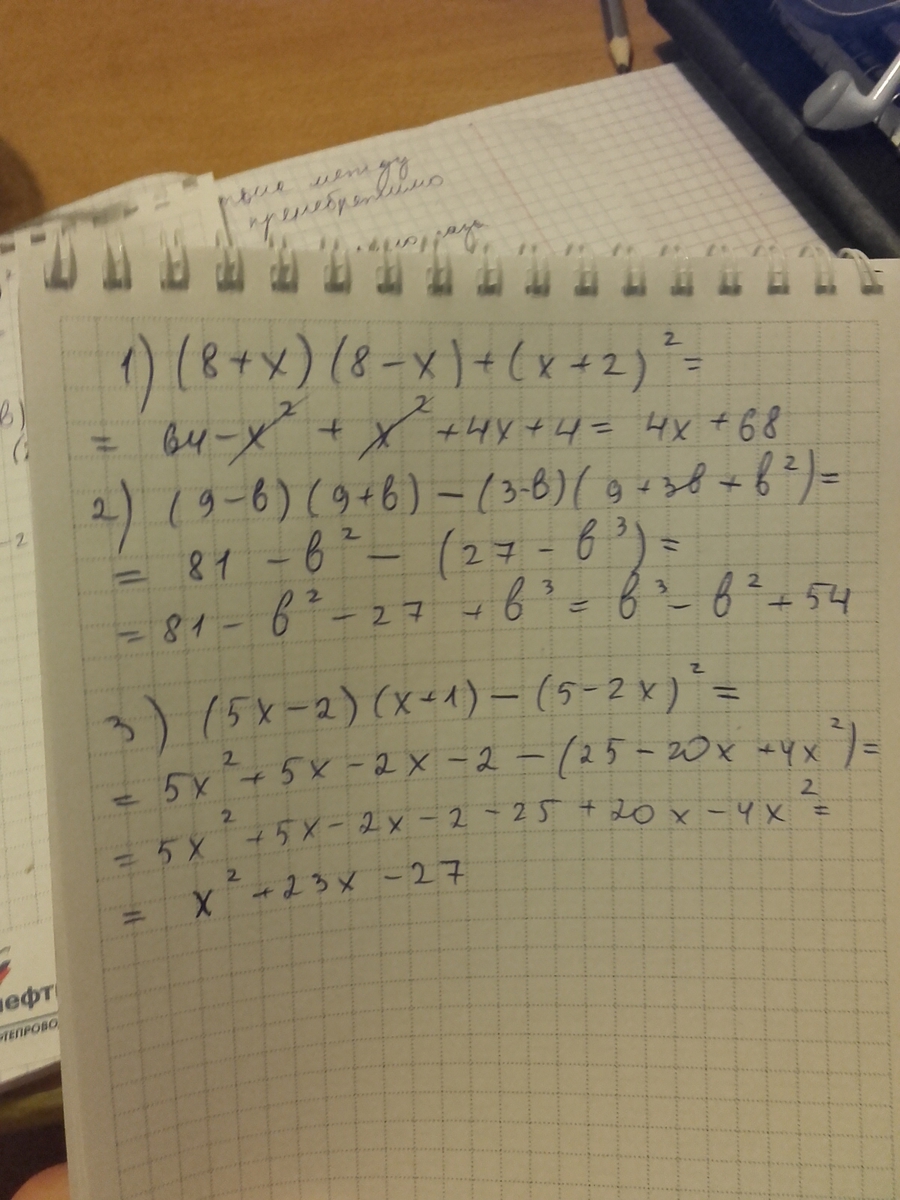 между
пренебрежимо
1) (8+x)(8-x)+(x+2)²=
= 64-x²+x²+4x+4= 4x+68
2) (9-b)(9+b)-(3-b)(9+3b+b²)=
= 81-b²-(27-b³)=
=81-b²-27+b³=b³-b²+54
3) (5x-2)(x+1)-(5-2x)²=
= 5x²+5x-2x-2-(25-20x+4x²)=
= 5x²+5x-2x-2-25+20x-4x²=
= x²+23x-27